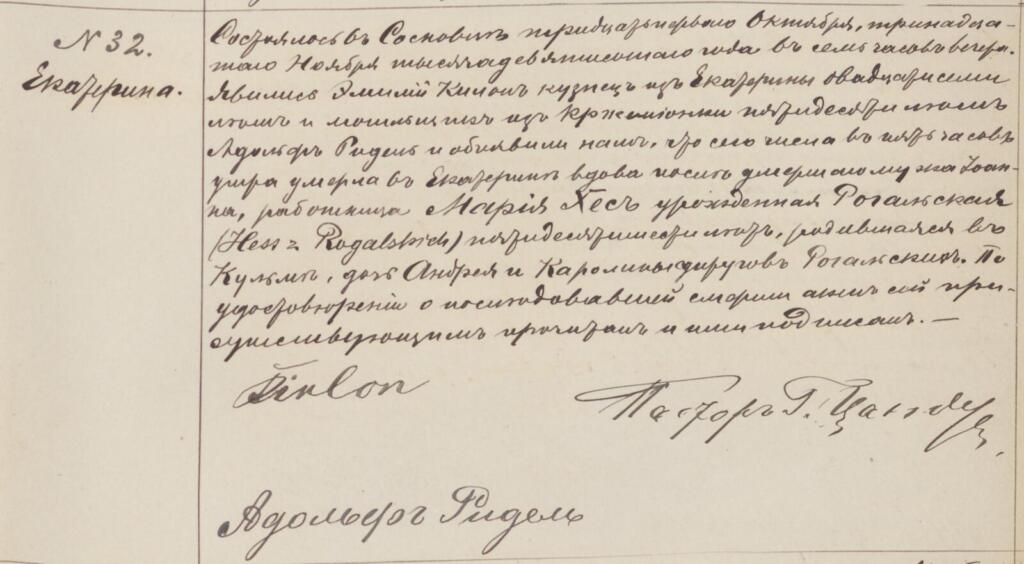 N 32.
Екатерина.
Состоялось въ Сосновицѣ тридцать перваго Октября, тринадца-
таго Ноября тысяча девятисотаго года въ семь часовъ вечера.
явились Эмилій Килонъ кузнецъ изъ Екатерины двадцати семи
лѣтъ и изъ пятидесяти лѣтъ
Адольфъ Ридель и объявили намъ, что сего числа въ пять часовъ
утра умерла въ Екатеринѣ вдова послѣ умершаго мужа Іоан-
на, работница Марія Хесъ урожденная Рогальская
(Hess z Rogalskich) пятидесяти шести лѣтъ, родившаяся въ
Кульмѣ, дочь Андрея и Каролины супруговъ Рогальскихъ. По
удостовѣреніи о послѣдовавшей смерти актъ сей при-
сутствующимъ прочитанъ и ими подписанъ. —
Пасторъ Г. Цандеръ,
Адольфъ Ридель